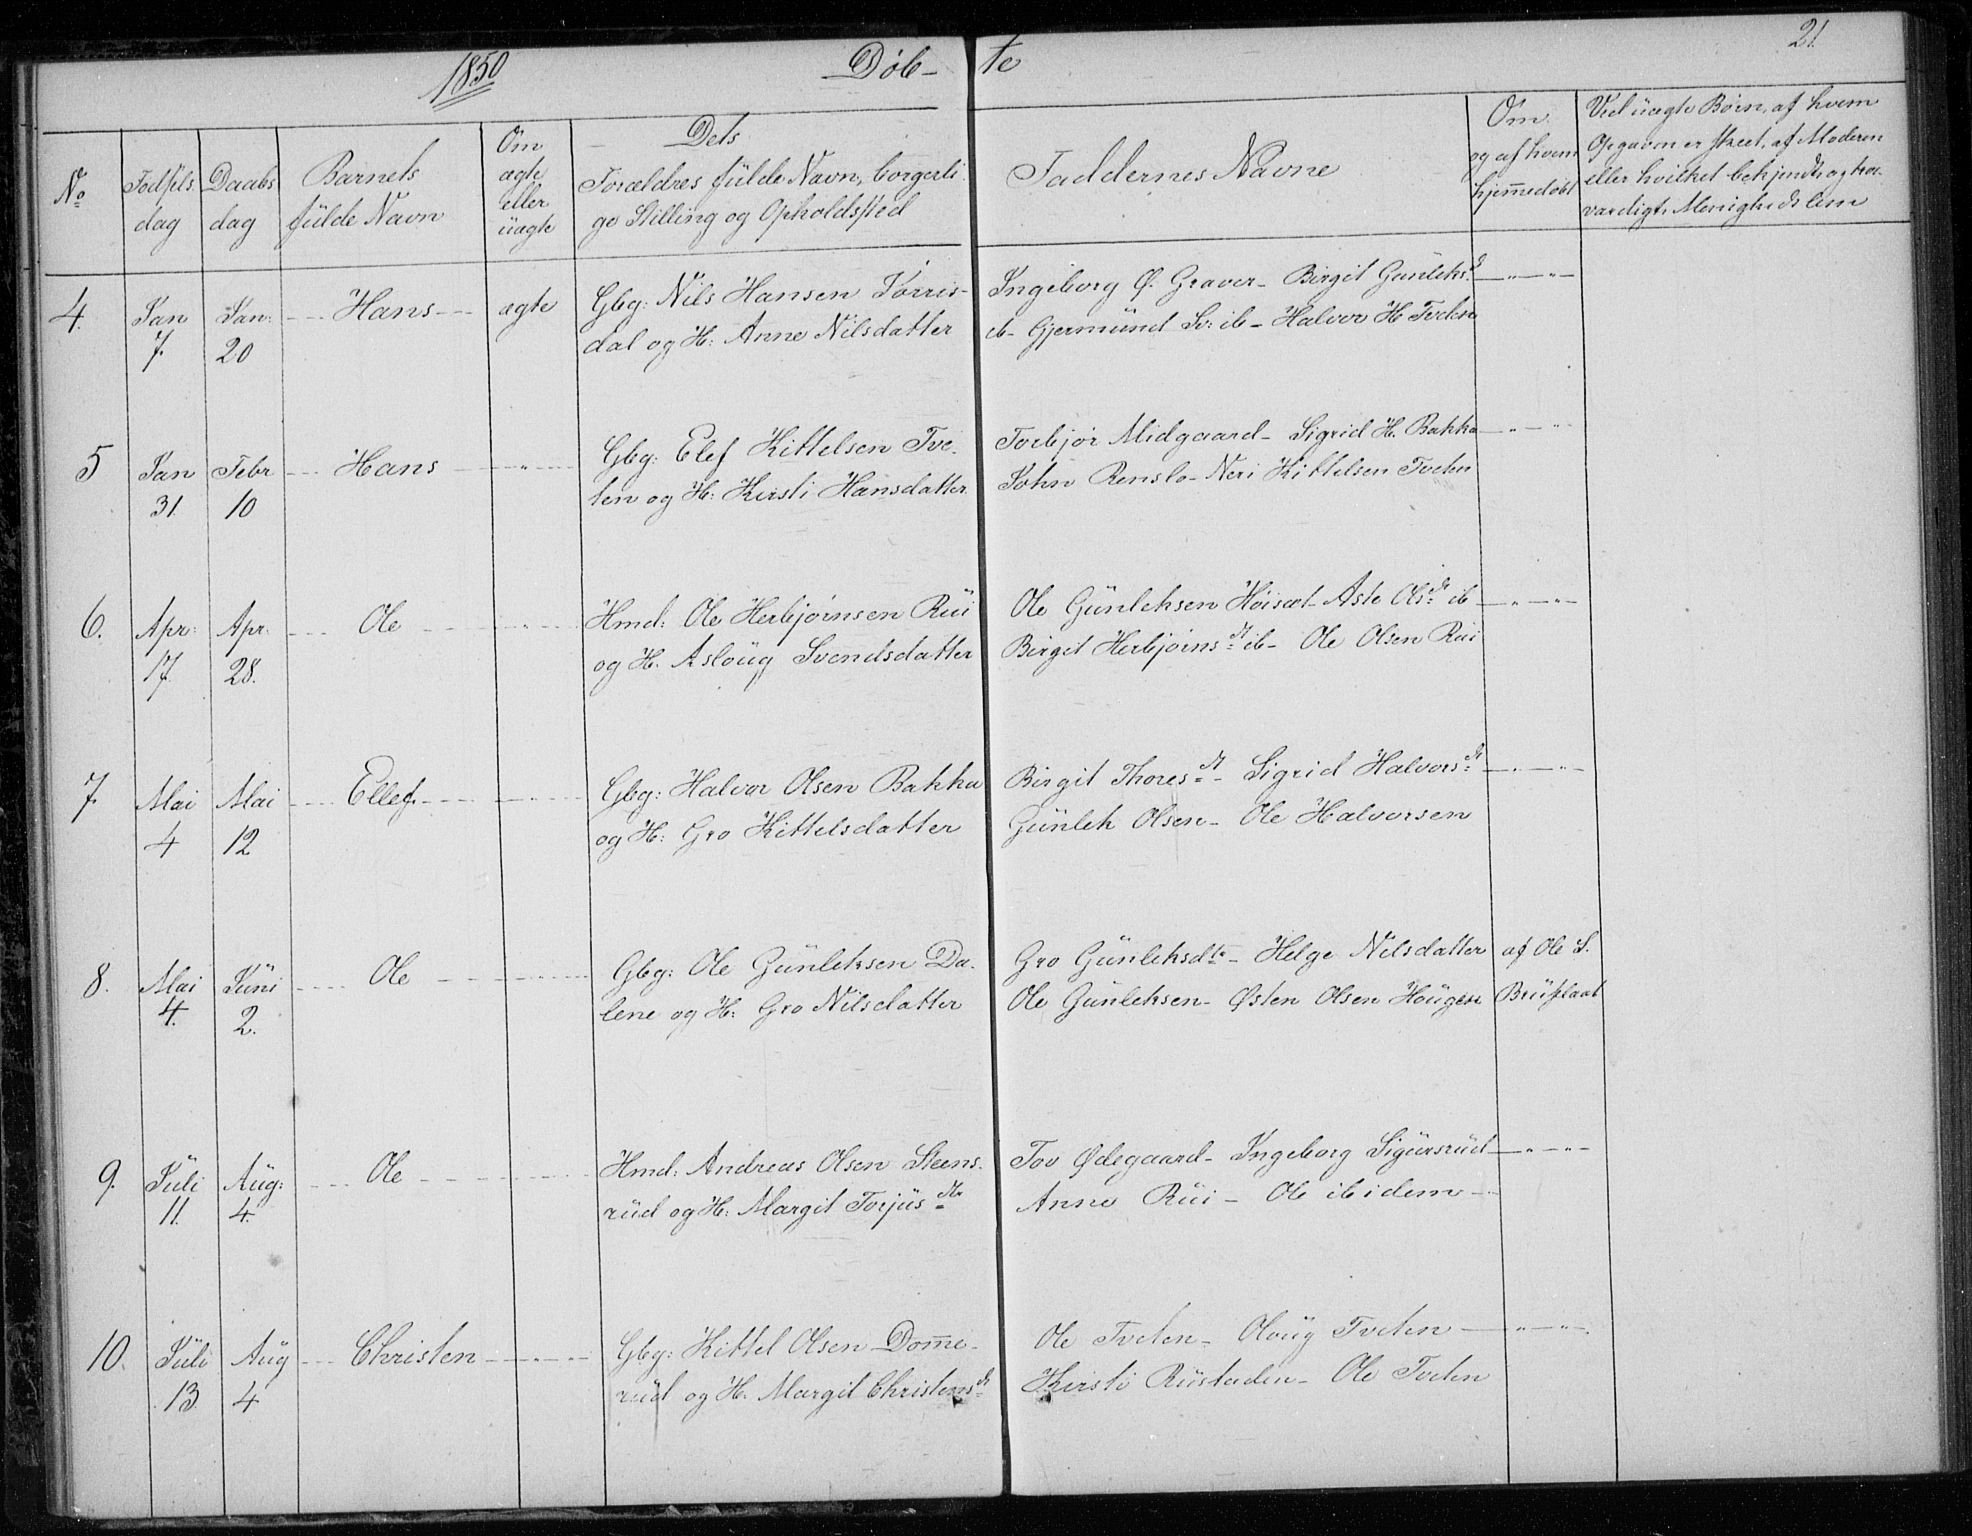 1850 Døb- te 21
No Fødsels dag Daabs dag Barnets fulde Navn Om ægte eller uægte Dets Forældres fulde Navn, borgerlige Stilling og Opholdssted Faddernes Navne Om og af hvem hjemmedøbt Ved uægte Børn, af hvem Opgaven er skeet, af Moderen eller hvilket bekjendt og troværdigt Menighedslem
4. Jan 7. Jan: 20 Hans ægte Gbg: Nils Hansen Torris-
dal og H: Anne Nilsdatter
Ingeborg Ø. Graver - Birgit Gunleksd
ib - Gjermund Sv: ib - Halvor H Tveten
5 Jan 31. Febr 10 Hans Gbg: Elef Kittelsen Tve-
ten og H: Kirsti Hansdatter
Torbjør Midgaard - Sigrid H. Bakka
John Renslo - Neri Kittelsen Tveten
6. Apr: 17. Apr: 28. Ole Hmd: Ole Herbjørnsen Rui
og H. Aslaug Svendsdatter
Ole Gunleksen Høisæt - Aste Olsdr ib
Birgit Herbjørnsdt ib - Ole Olsen Rui
7. Mai 4 Mai 12 Ellef Gbg: Halvor Olsen Bakka
og H: Gro Kittelsdatter
Birgit Thoresdt - Sigrid Halvorsdt
Gunlek Olsen - Ole Halvorsen
8. Mai 4. Juni 2. Ole Gbg: Ole Gunleksen Da-
lene og H: Gro Nilsdatter
Gro Gunleksdtr - Helge Nilsdatter af Ole S.
Ole Gunleksen - Østen Olsen Haugen Bruflaat
9. Juli 11. Aug: 4. Ole Hmd: Andreas Olsen Steens-
rud og H: Margit Torjusdtr
Tov Ødegaard - Ingeborg Sigursrud
Anne Rui - Ole ibidem -
10. Juli 13. Aug 4 Christen Gbg: Kittel Olsen Domme-
rud og H. Margit Christensdt
Ole Tveten - Oloug Tveten
Kirsti Rustaden - Ole Tveten